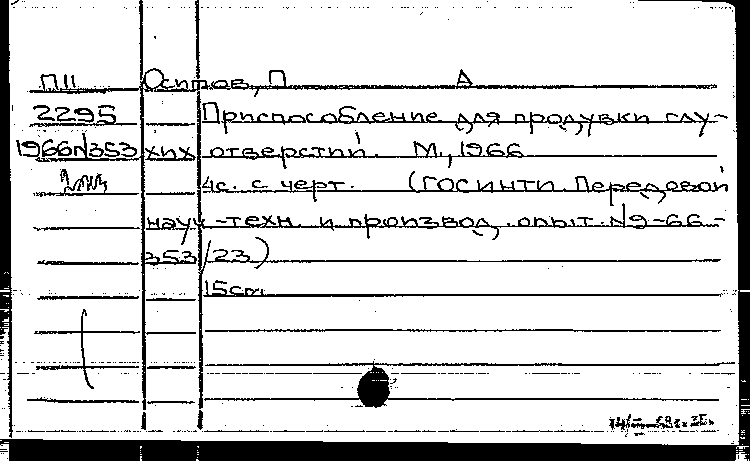 П11 Осипов, П А
2295 Приспособление для продувки глу-
1966№353 хих отверстий. М., 1966
4с. с черт. (ГОСИНТИ. Передовой
науч-техн. и производ. опыт. №9-66-
353/23)
15cm